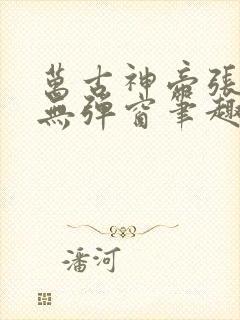 萬古神帝張
無彈窗筆趣
潘河